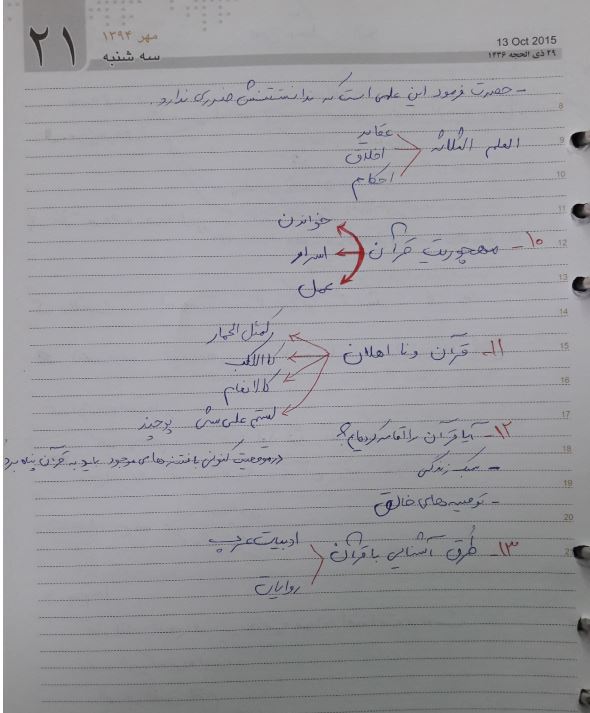 ۲۱
مهر ۱۳۹۴
سه شنبه
13 Oct 2015
۲۹ ذی الحجه ۱۴۳۶
- حضرت فرمود این علمی است که ندانستنش ضرری ندارد.
العلم الثلاثه
عقاید
اخلاق
احکام
۱۰- مهجوریت قرآن
خواندن
اسرار
عمل
۱۱- قرآن و نا اهلان
کمثل الحمار
کالکلب
کالانعام
لستم علی شئ
۱۲- آیا قرآن را اقامه کرده‌ایم؟
در موقعیت کنونی با فتنه های موجود باید به قرآن پناه برد
- سبک زندگی
- توصیه های خالق
۱۳- طرق آشنایی با قرآن
ادبیات عرب
روایات
8
9
10
11
12
13
14
15
16
17
18
19
20
21